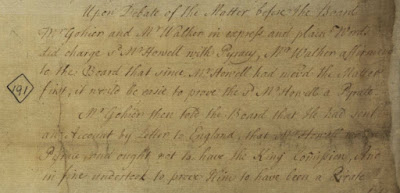 Upon Debate of the Matter before the Board
Mr Gohier and Mr Walker in express and plain Words
did charge sd. Mr Howell with Pyracy, Mr Walker affirming
to the Board that since Mr Howell had mov'd the Matter
first, it would be easie to prove the sd. Mr Howell a Pyrate
191
Mr Gohier then told the Board that He had sent
an Account by Letter to England, that Mr Howell
Pyrate and ought not to have the King's Commission, And
in fine undertook to prove Him to have been a Pirate